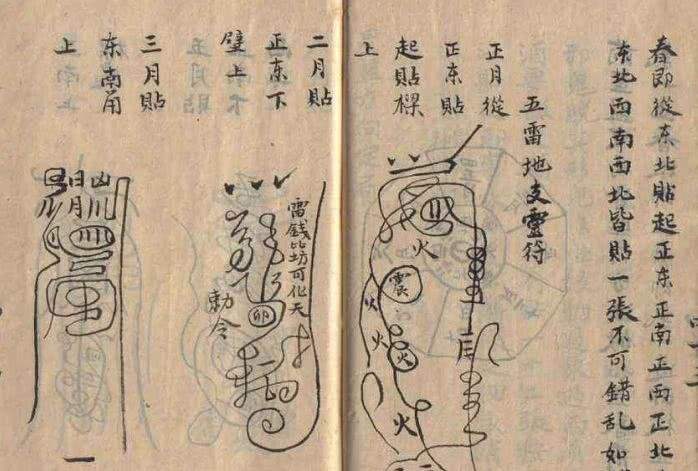 春即從东北貼起正东正南正西正北
东北西南西北皆貼一張不可錯乱如
五雷地支靈符
正月從
正东貼
起貼樑
上
火
震
火
火
火
火
二月貼
正东下
壁上
雷錢比坊可化天
卯
勅令
三月貼
东南角
上
日
月